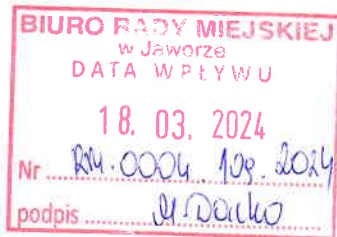 BIURO RADY MIEJSKIEJ
w Jaworze
DATA WPŁYWU
18. 03. 2024
Nr RM.0004.109.2024
podpis M.Dacko